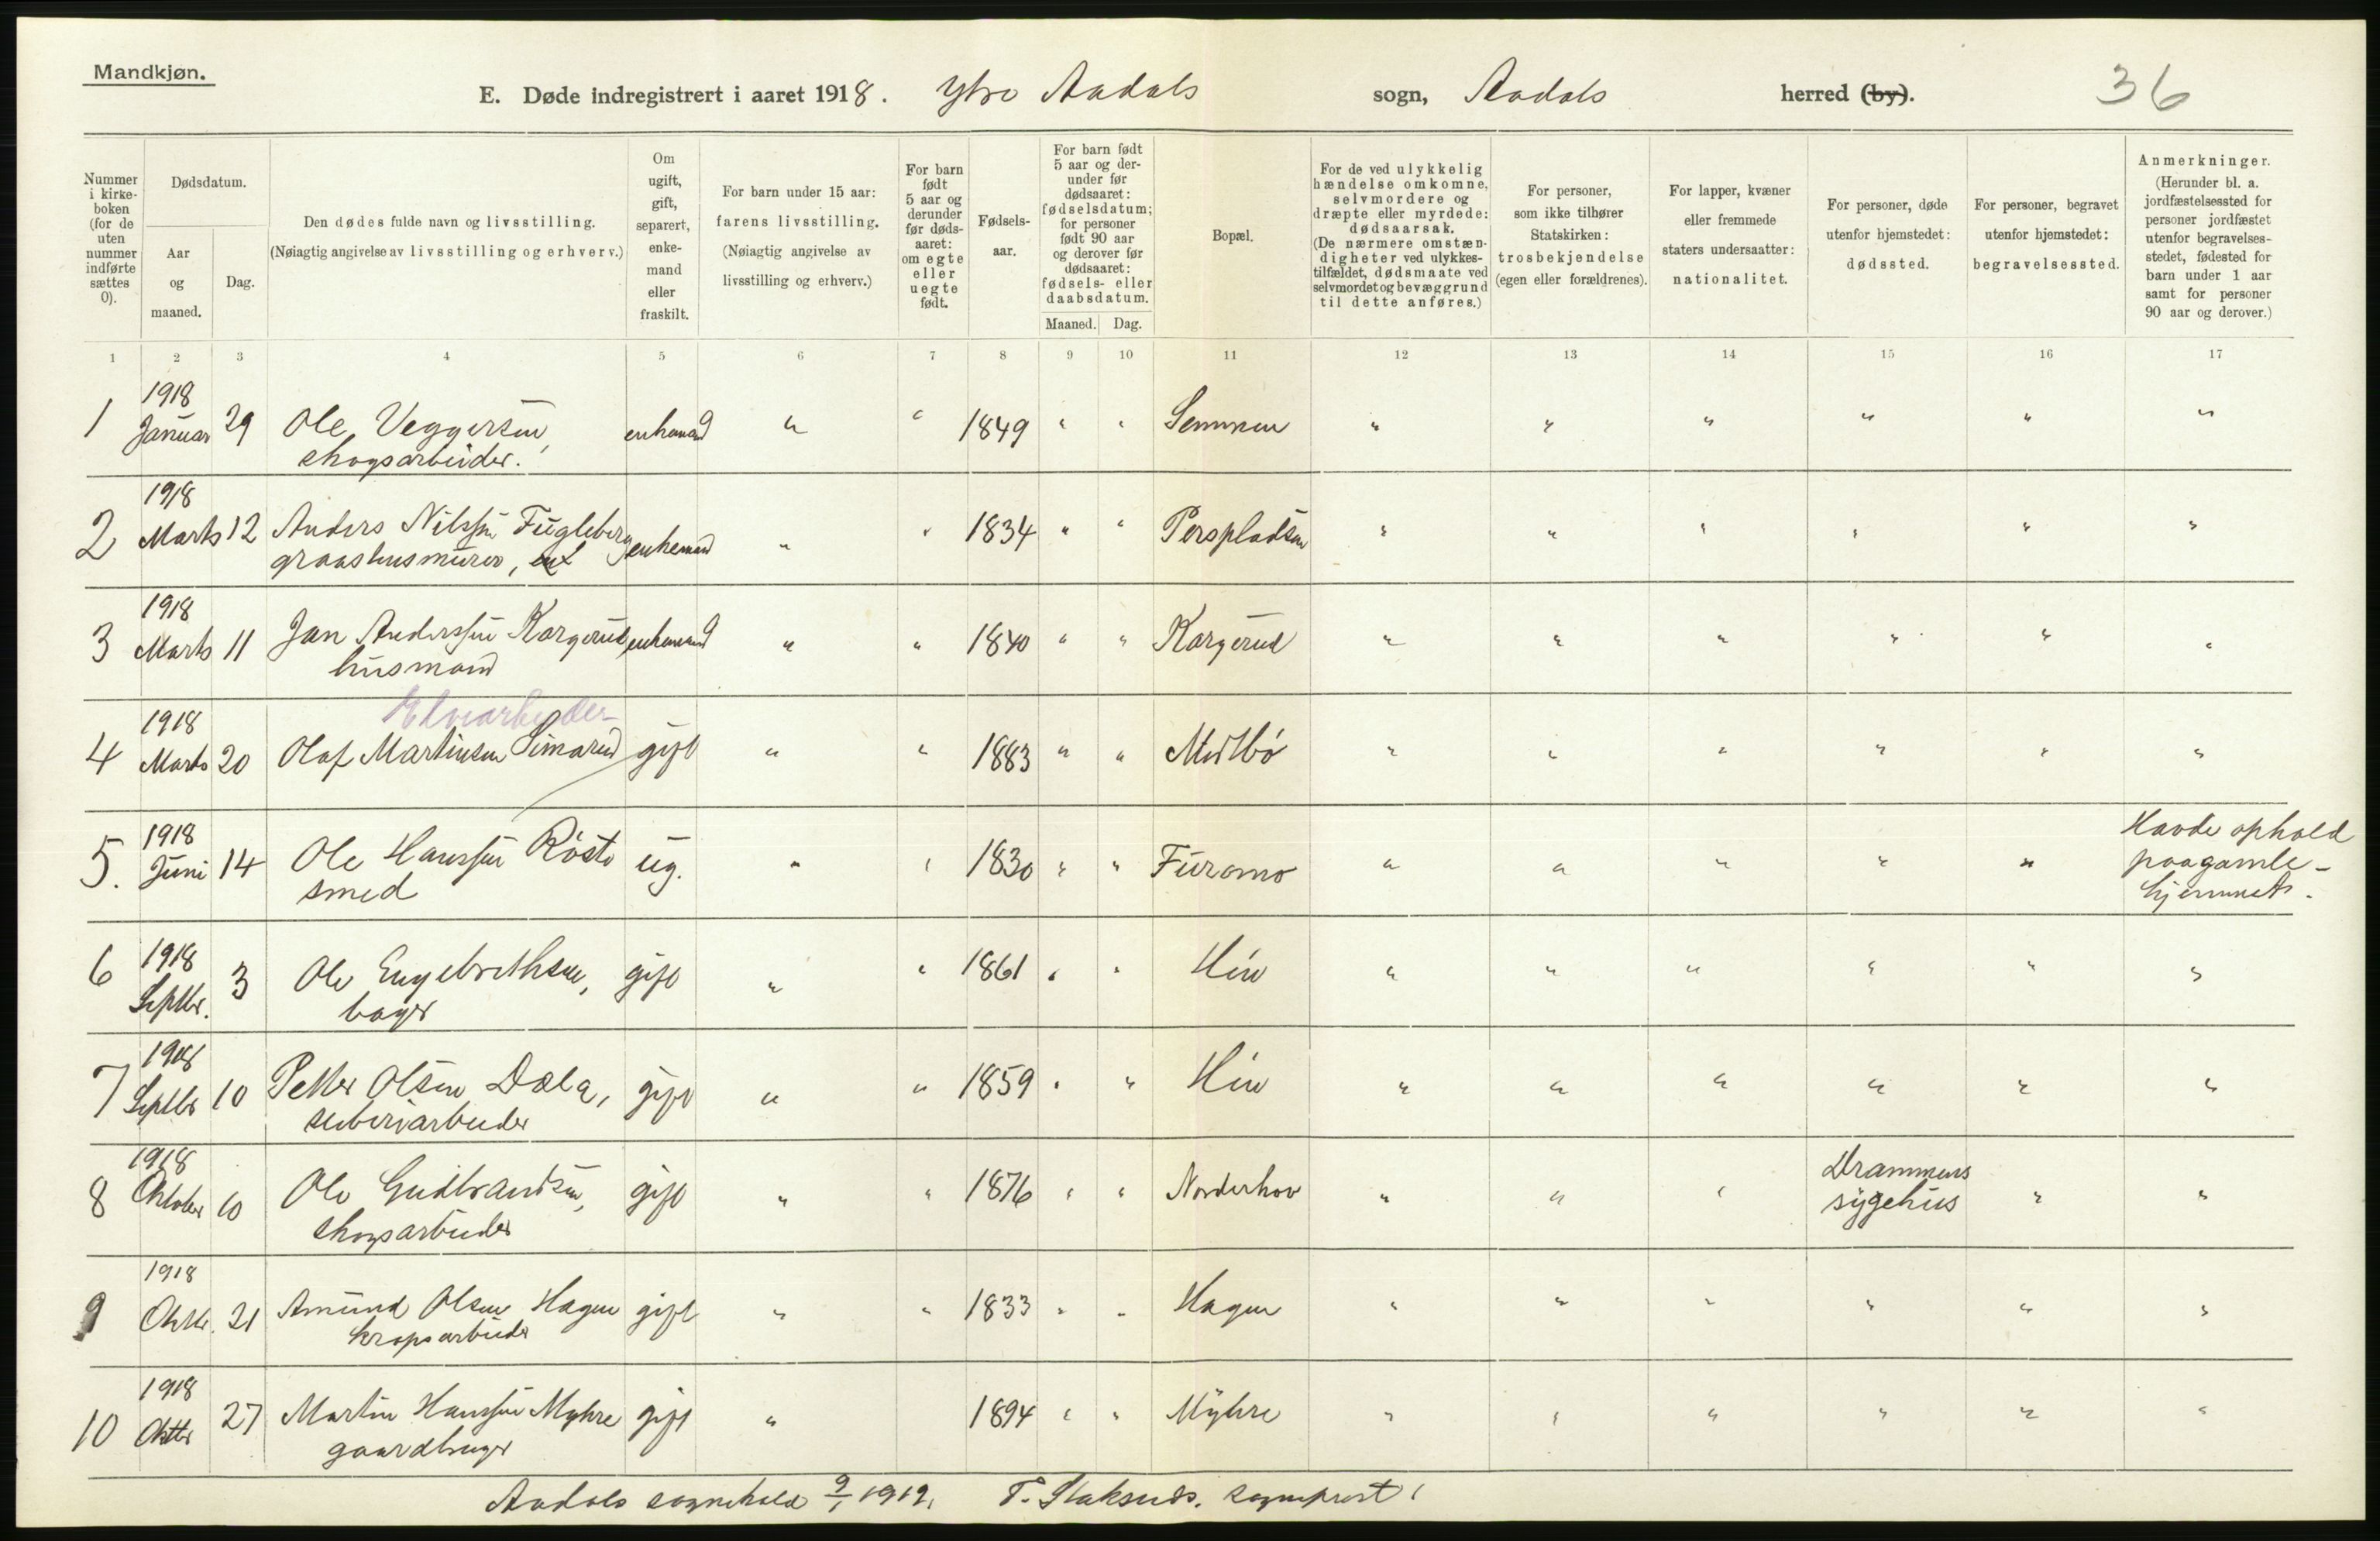 Mandkjøn.
E. Døde indregistrert i aaret 1918. Ytre Aadals sogn, Aadals herred (by). 36
Nummer i kirke-boken (for de uten nummer indførte sættes 0).
Dødsdatum.
Aar og maaned.
Dag.
Den dødes fulde navn og livsstilling.
(Nøiagtig angivelse av livsstilling og erhverv.)
Om ugift, gift, separert, enke-mand eller fraskilt.
For barn under 15 aar: farens livsstilling.
(Nøiagtig angivelse av livsstilling og erhverv.)
For barn født 5 aar og derunder før døds-aaret: om egte eller uegte født.
Fødsels-aar.
For barn født 5 aar og der-under før dødsaaret: fødselsdatum; for personer født 90 aar og derover før dødsaaret: fødsels- eller daabsdatum.
Maaned. Dag.
Bopæl.
For de ved ulykkelig hændelse omkomne, selvmordere og dræpte eller myrdede: dødsaarsak.
(De nærmere omstæn-digheter ved ulykkes-tilfældet, dødsmaate ved selvmordet og bevæggrund til dette anføres.)
For personer, som ikke tilhører Statskirken: trosbekjendelse (egen eller forældrenes).
For lapper, kvæner eller fremmede staters undersaatter: nationalitet.
For personer, døde utenfor hjemstedet: dødssted.
For personer, begravet utenfor hjemstedet: begravelsessted.
Anmerkninger.
(Herunder bl. a. jordfæstelsessted for personer jordfæstet utenfor begravelses-stedet, fødested for barn under 1 aar samt for personer 90 aar og derover.)
1 2 3 4 5 6 7 8 9 10 11 12 13 14 15 16 17
1918
1 Januar 29 Ole Veggersen, enkemand " " 1849 " " Semmen " " " " " "
skogsarbeider.
1918
2 Marts 12 Anders Nilssen Fugleberg enkemand " " 1834 " " Perspladsen " " " " " "
graastensmurer,
1918
3 Marts 11 Jan Anderssen Kargerud enkemand " " 1840 " " Kargerud " " " " " "
husmand
Elvearbeider
1918
4 Marts 20 Olaf Martinsen Simarud gift " " 1883 " " Midtbö " " " " " "
1918
5. Juni 14 Ole Hanssen Röste ug. " " 1830 " " Furumo " " " " " Havde ophold
smed paa gamle-
hjemmet.
1918
6 Septbr. 3 Ole Engebrethsen, gift " " 1861 " " Hen " " " " " "
bager
1918
7 Septbr 10 Petter Olsen Dæla, gift " " 1859 " " Hen " " " " " "
sliberiarbeider
1918
8 Oktober 10 Ole Gudbrandsen, gift " " 1876 " " Norderhov " " " Drammens sygehus " "
skogsarbeider
1918
9 Oktbr. 21 Amund Olsen Hagen gift " " 1833 " " Hagen " " " " " "
kropsarbeider
1918
10 Oktbr 27 Martin Hanssen Myhre gift " 1894 " " Myhre " " " " " "
gaardbruger
Aadals sognekald 9/1 1919. sogneprest